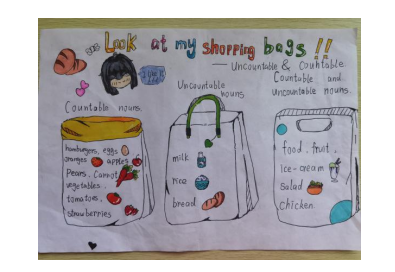 Look at my shopping bags!!
— Uncountable & Countable
I like it
Countable nouns:
Uncountable
nouns
Countable and
uncountable nouns
hamburgers, eggs
oranges apples
Pears, Carrot
vegetables
tomatoes,
strawberries
milk
rice
bread
food, fruit,
ice-cream
salad
Chicken